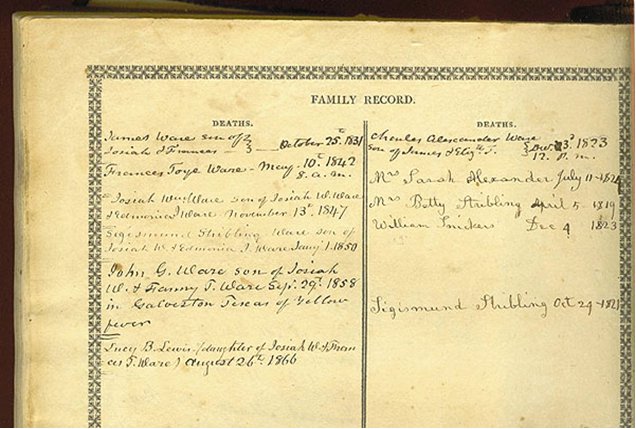 FAMILY RECORD.
DEATHS.
James Ware son of
Josiah & Frances } October 25th 1831
Frances Toye Ware - May 10th 1842
8. a. m.
Josiah Wm Ware son of Josiah W. Ware
& Edmonia J Ware November 13th 1847
Sigismund Stribling Ware son of
Josiah W. & Edmonia J. Ware Jany 1. 1850
John G. Ware son of Josiah
W. & Fanny T. Ware Sep. 29th 1858
in Galveston Texas of Yellow
fever
Lucy B. Lewis (daughter of Josiah W. & Fran
ces T. Ware) August 26th 1866
DEATHS.
Charles Alexander Ware
son of James & Elizth T. } 3d 1823
12. p. m.
Mrs Sarah Alexander July 11 - 1824
Mrs Betty Stribling April 5 - 1819
William Snickers Dec 4 1823
Sigismund Stribling Oct 24 - 1821